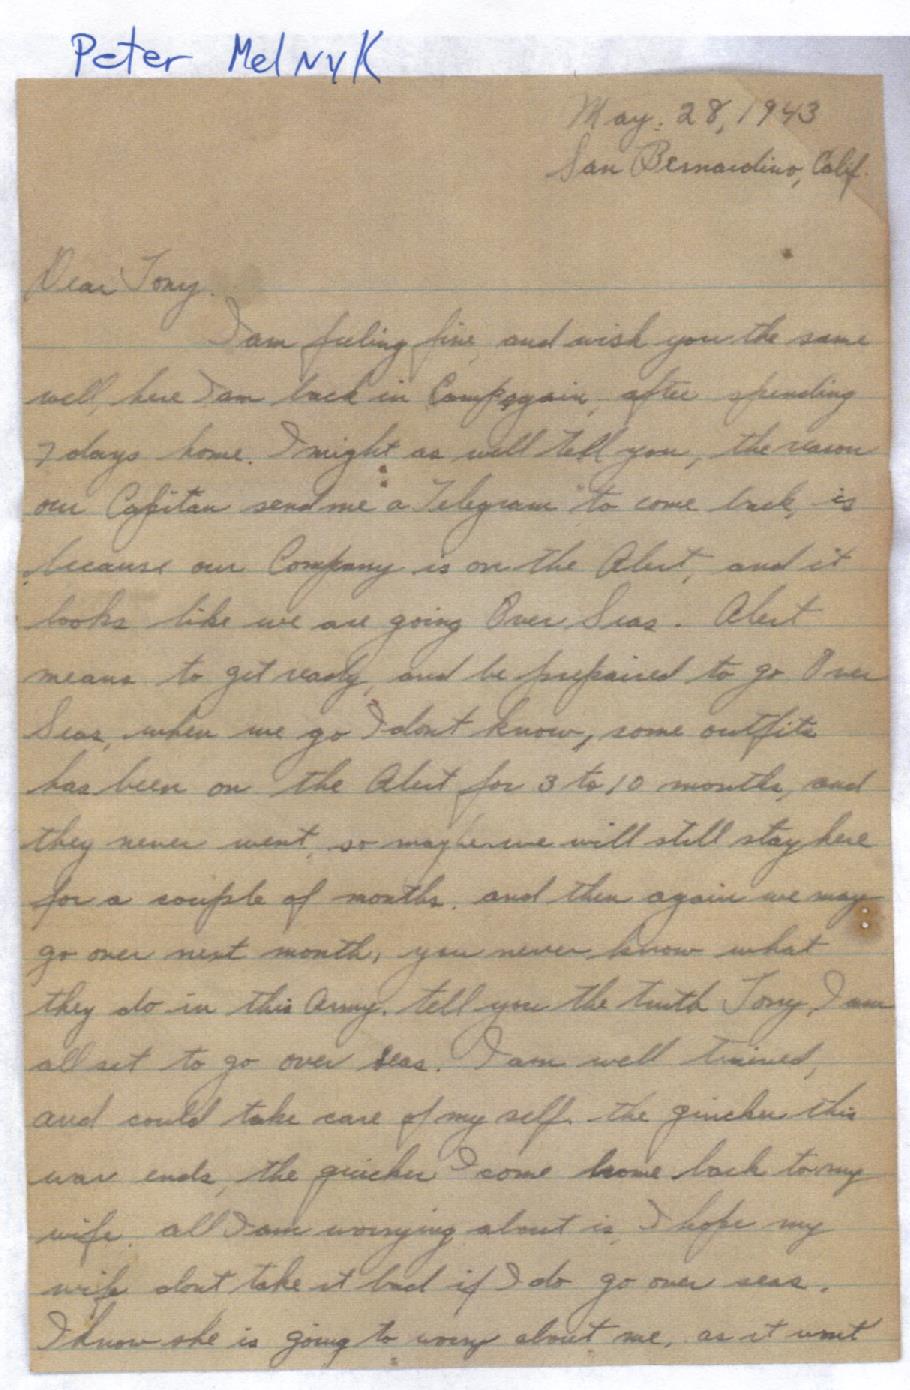 Peter Melnyk
May. 28, 1943
San Bernardino, Calif.
Dear Tony.
I am feeling fine, and wish you the same
well, here I am back in Camp again, after spending
7 days home. I might as well tell you, the reason
our Capitan send me a "Telegram" to come back, is
because our Company is on the Alert, and it
looks like we are going Over Seas. Alert
means to get ready, and be prepaired to go Over
Seas, when we go I dont know, some outfits
has been on the Alert for 3 to 10 months, and
they never went, so maybe we will still stay here
for a couple of months. and then again we may
go over next month, you never know what
they do in this Army. tell you the truth Tony, I am
all set to go over seas. I am well trained,
and could take care of my self. the quicker this
war ends, the quicker I come home back to my
wife. all I am worrying about is, I hope my
wife dont take it bad if I do go over seas.
I know she is going to worry about me, as it wont